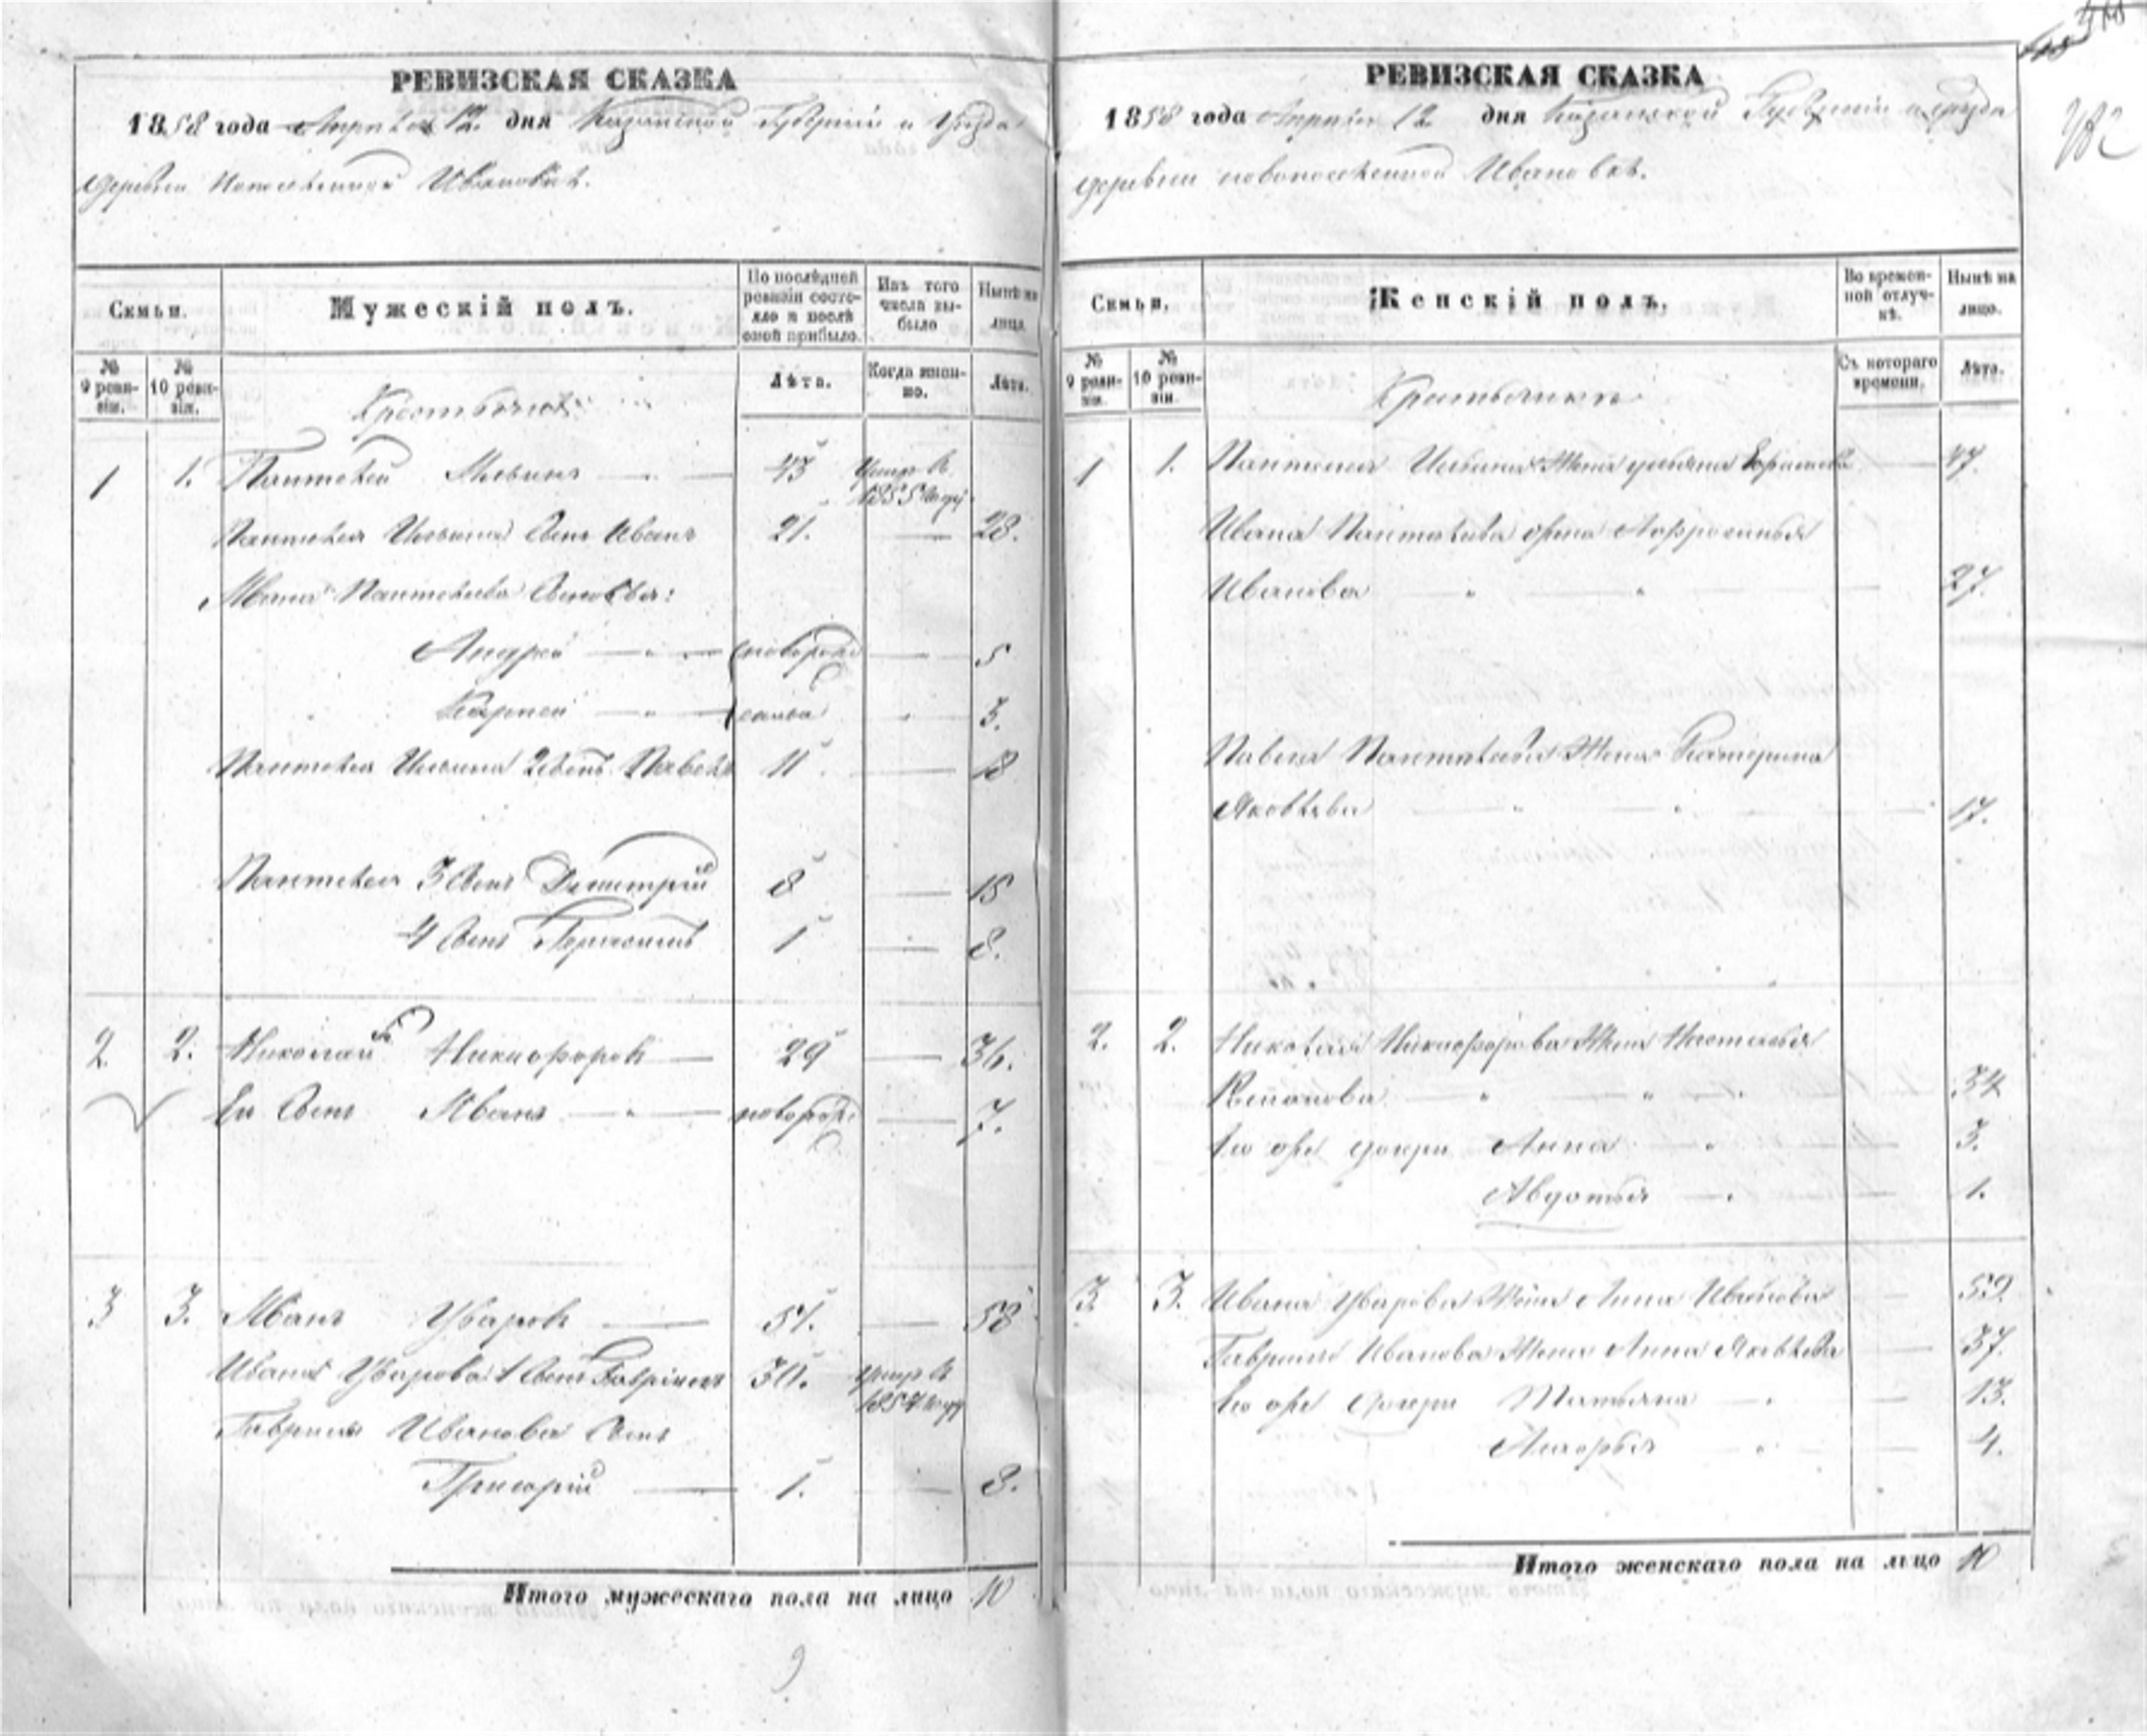 РЕВИЗСКАЯ СКАЗКА
1858 года Апреля 12. дня Казанской Губернiи и Уезда
деревни Ивановки.
Семьи.
Мужескiй полъ.
По послѣдней ревизiи состояло и послѣ оной прибыло.
Изъ того числа выбыло
Нынѣ на лицо.
№ 9 ревизiи.
№ 10 ревизiи.
Лѣта.
Когда именно.
Лѣта.
Крестьяне
1 1. Пантелей Ильинъ 43 умеръ въ 1855 году
Пантелея Ильина сынъ Иванъ 21. 28.
Ивана Пантелеева сыновья:
Андрей новорож 5
3.
Пантелея Ильина 2 сынъ Павелъ 11 18
Пантелея 3 сынъ Дмитрiй 8 15
4 сынъ Герасимъ 1 8.
2 2. Николай Никифоровъ 29 36.
Ево сынъ Иванъ новорож 7.
3 3. Иванъ Уваровъ 51. 58
Ивана Уварова 1 сынъ Гаврiилъ 30. умеръ въ 1857 году
Гаврилы Иванова сынъ
Григорiй 1. 8.
Итого мужескаго пола на лицо 10
РЕВИЗСКАЯ СКАЗКА
1858 года Апреля 12 дня Казанской Губернiи и уезда
деревни новопоселенной Ивановки.
Семьи.
Женскiй полъ.
Во временной отлучкѣ.
Нынѣ на лицо.
№ 9 ревизiи.
№ 10 ревизiи.
Съ котораго времени.
Лѣта.
Крестьянки
1 1. Пантелея Ильина жена Ульяна 47.
Ивана Пантелеева жена Афросинья
Иванова 27.
Павла Пантелеева жена Катерина
Яковлева 17.
2. 2. Николая Никифорова жена Настасья
34
Ево же дочери Анна 3.
Авдотья 1.
3. 3. Ивана Уварова жена Анна Иванова 59.
Гаврилы Иванова жена Анна Яковлева 37.
Ево же дочери Татьяна 13.
4.
Итого женскаго пола на лицо 10